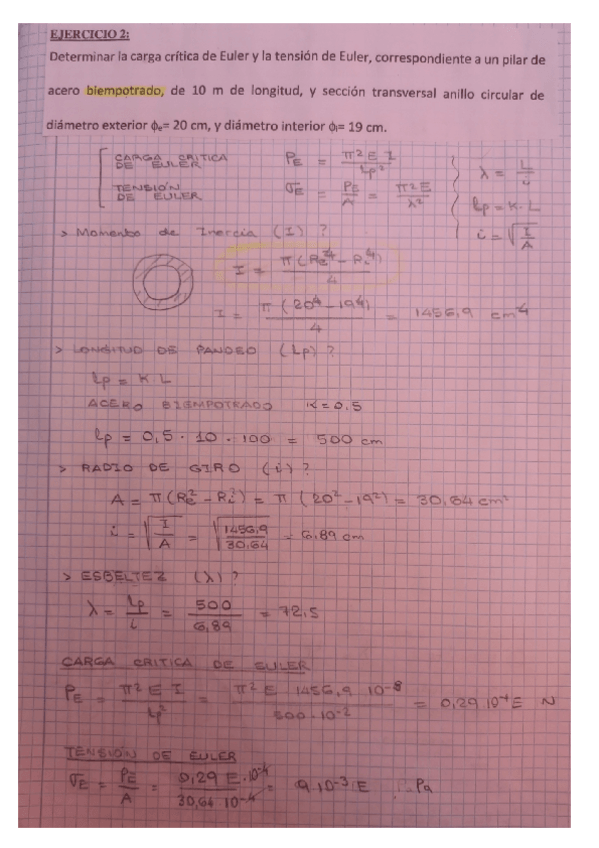 EJERCICIO 2:
Determinar la carga crítica de Euler y la tensión de Euler, correspondiente a un pilar de
acero biempotrado, de 10 m de longitud, y sección transversal anillo circular de
diámetro exterior ϕe= 20 cm, y diámetro interior ϕi= 19 cm.
CARGA CRITICA DE EULER PE = π² E I / Lp²
TENSIÓN DE EULER σE = PE / A = π² E / λ²
λ = L / i
lp = K · L
i = √(I / A)
> Momento de Inercia (I) ?
I = π (Re⁴ - Ri⁴) / 4
I = π (20⁴ - 19⁴) / 4 = 1456,9 cm⁴
> LONGITUD DE PANDEO (Lp) ?
lp = K L
ACERO BIEMPOTRADO K = 0,5
lp = 0,5 · 10 · 100 = 500 cm
> RADIO DE GIRO (i) ?
A = π (Re² - Ri²) = π (20² - 19²) = 30,64 cm²
i = √(I / A) = √(1456,9 / 30,64) = 6,89 cm
> ESBELTEZ (λ) ?
λ = lp / i = 500 / 6,89 = 72,5
CARGA CRITICA DE EULER
PE = π² E I / lp² = π² E 1456,9 10⁻⁸ / 500 · 10⁻² = 0,29 10⁻⁴ E N
TENSIÓN DE EULER
σE = PE / A = 0,29 E · 10⁻⁴ / 30,64 10⁻⁴ = 9 · 10⁻³ E Pa